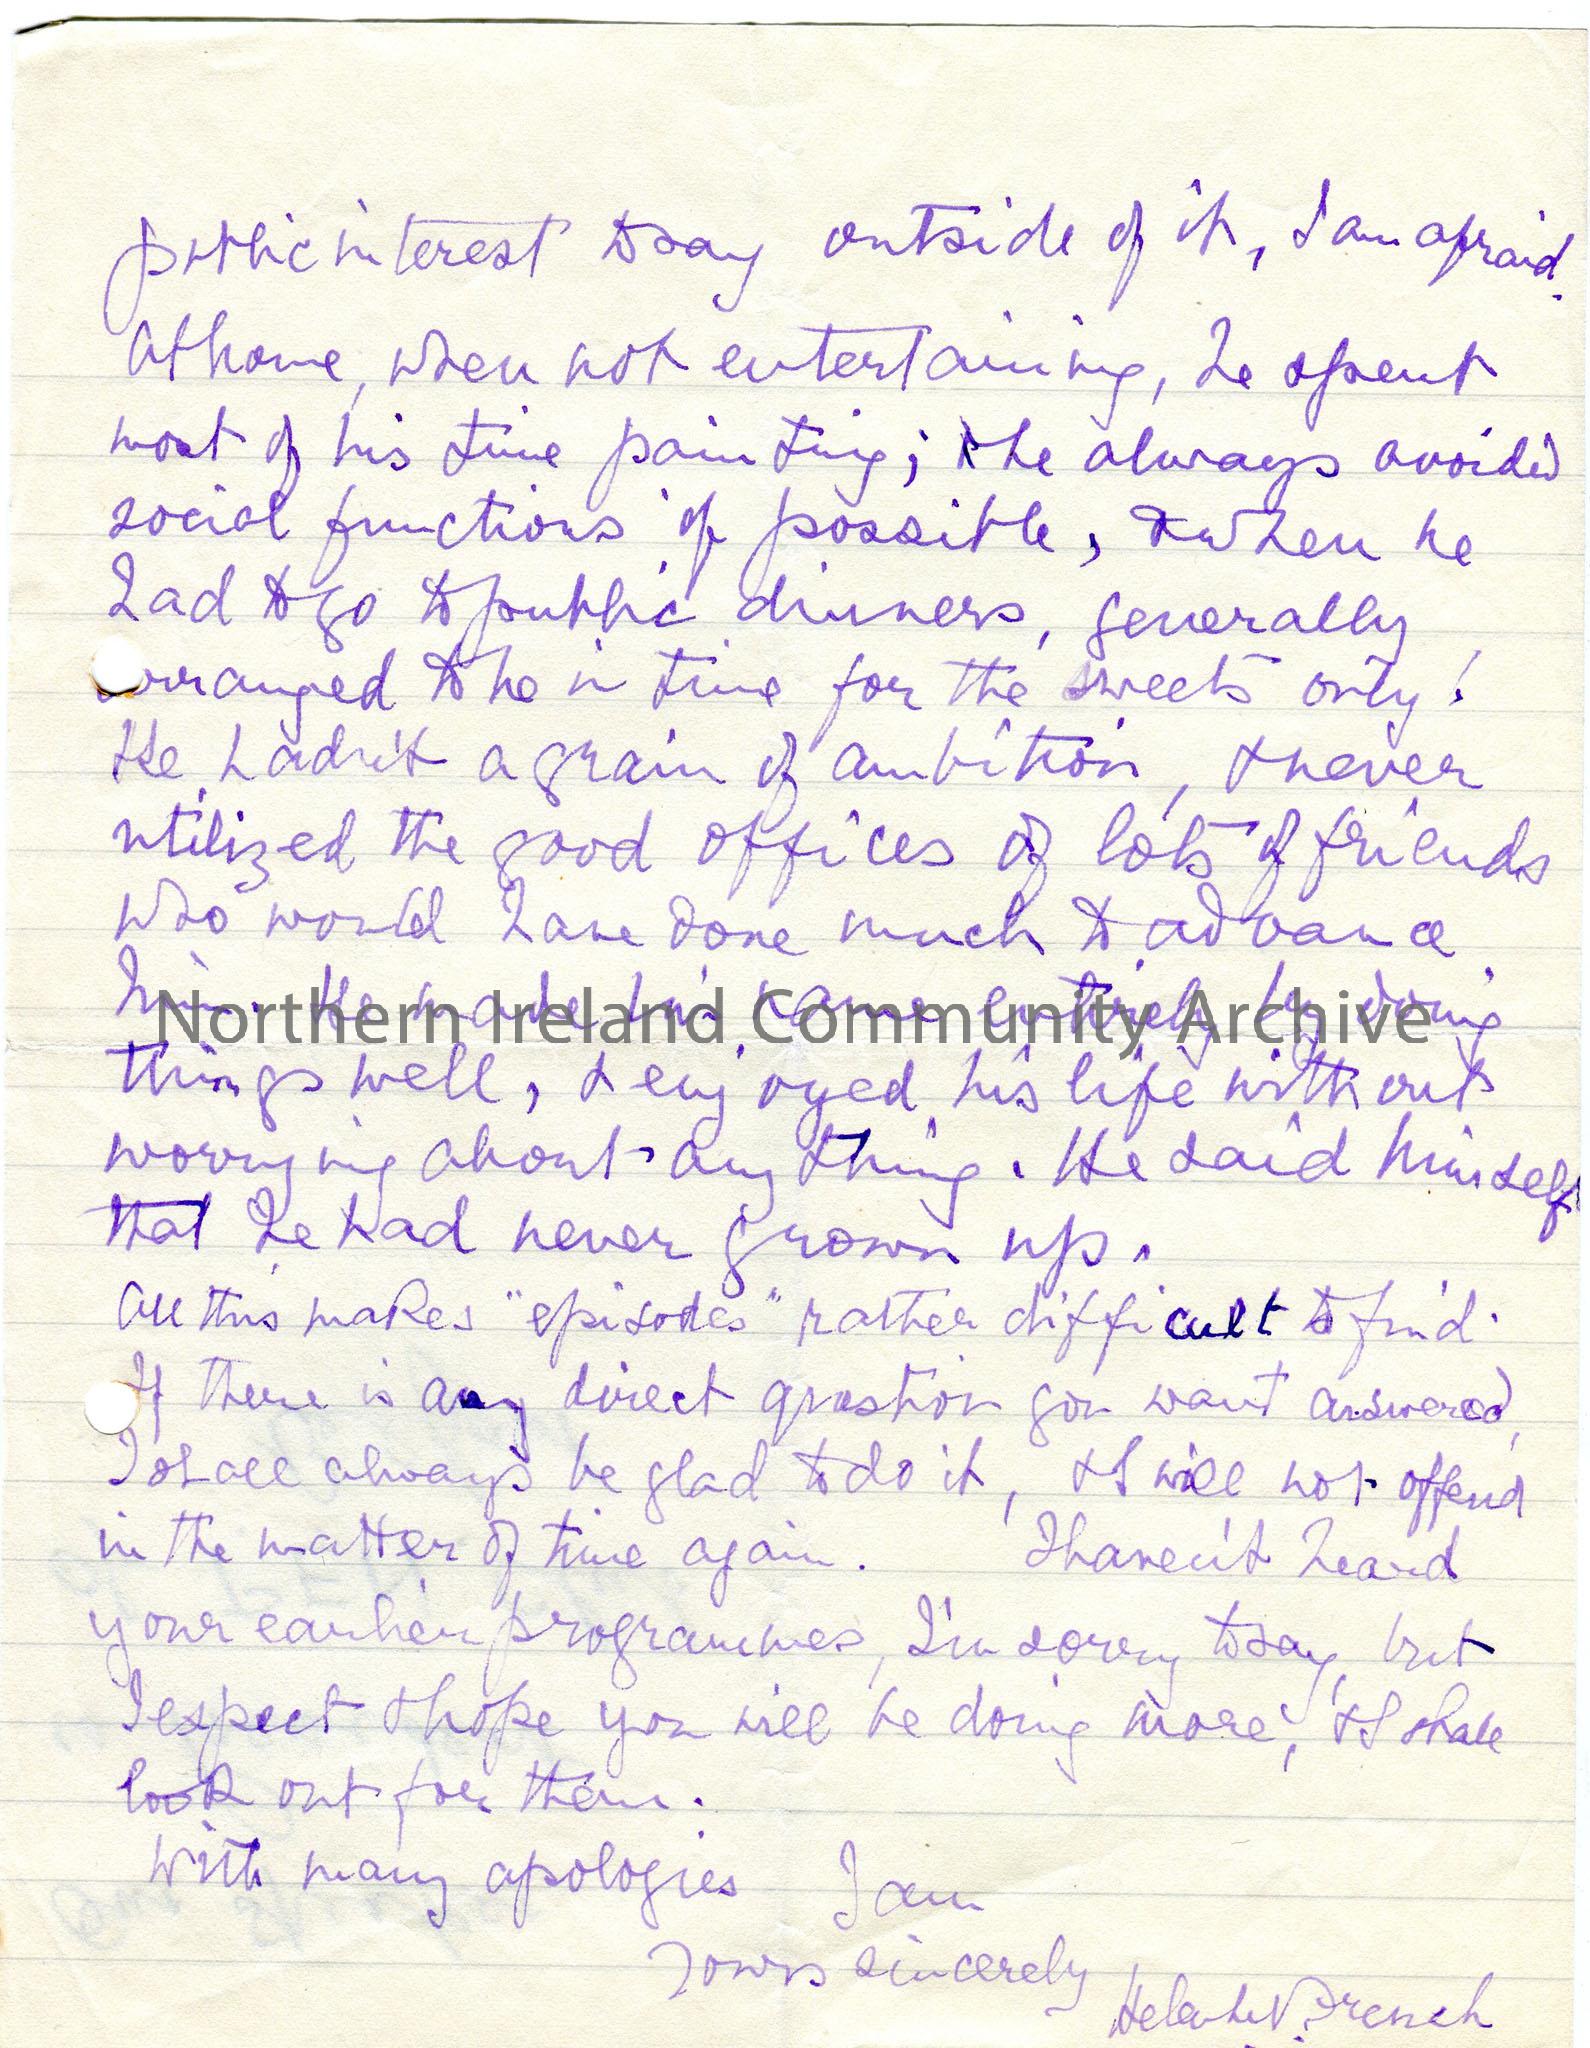 public interest to say outside of it, I am afraid.
At home, when not entertaining, he spent
most of his time painting; & he always avoided
social functions if possible, & when he
had to go to public dinners, generally
arranged to be in time for the sweets only!
He hadn't a grain of ambition, & never
utilized the good offices of lots of friends
who would have done much to advance
him. He made his name entirely by doing
Northern Ireland Community Archive
things well, & enjoyed his life without
worrying about anything. He said himself
that he had never grown up.
All this makes "episodes" rather difficult to find.
If there is any direct question you want answered,
I shall always be glad to do it, & I will not offend
in the matter of time again. I haven't heard
your earlier programmes, I'm sorry to say, but
I expect & hope you will be doing more, & I shall
look out for them.
With many apologies I am
Yours sincerely
French